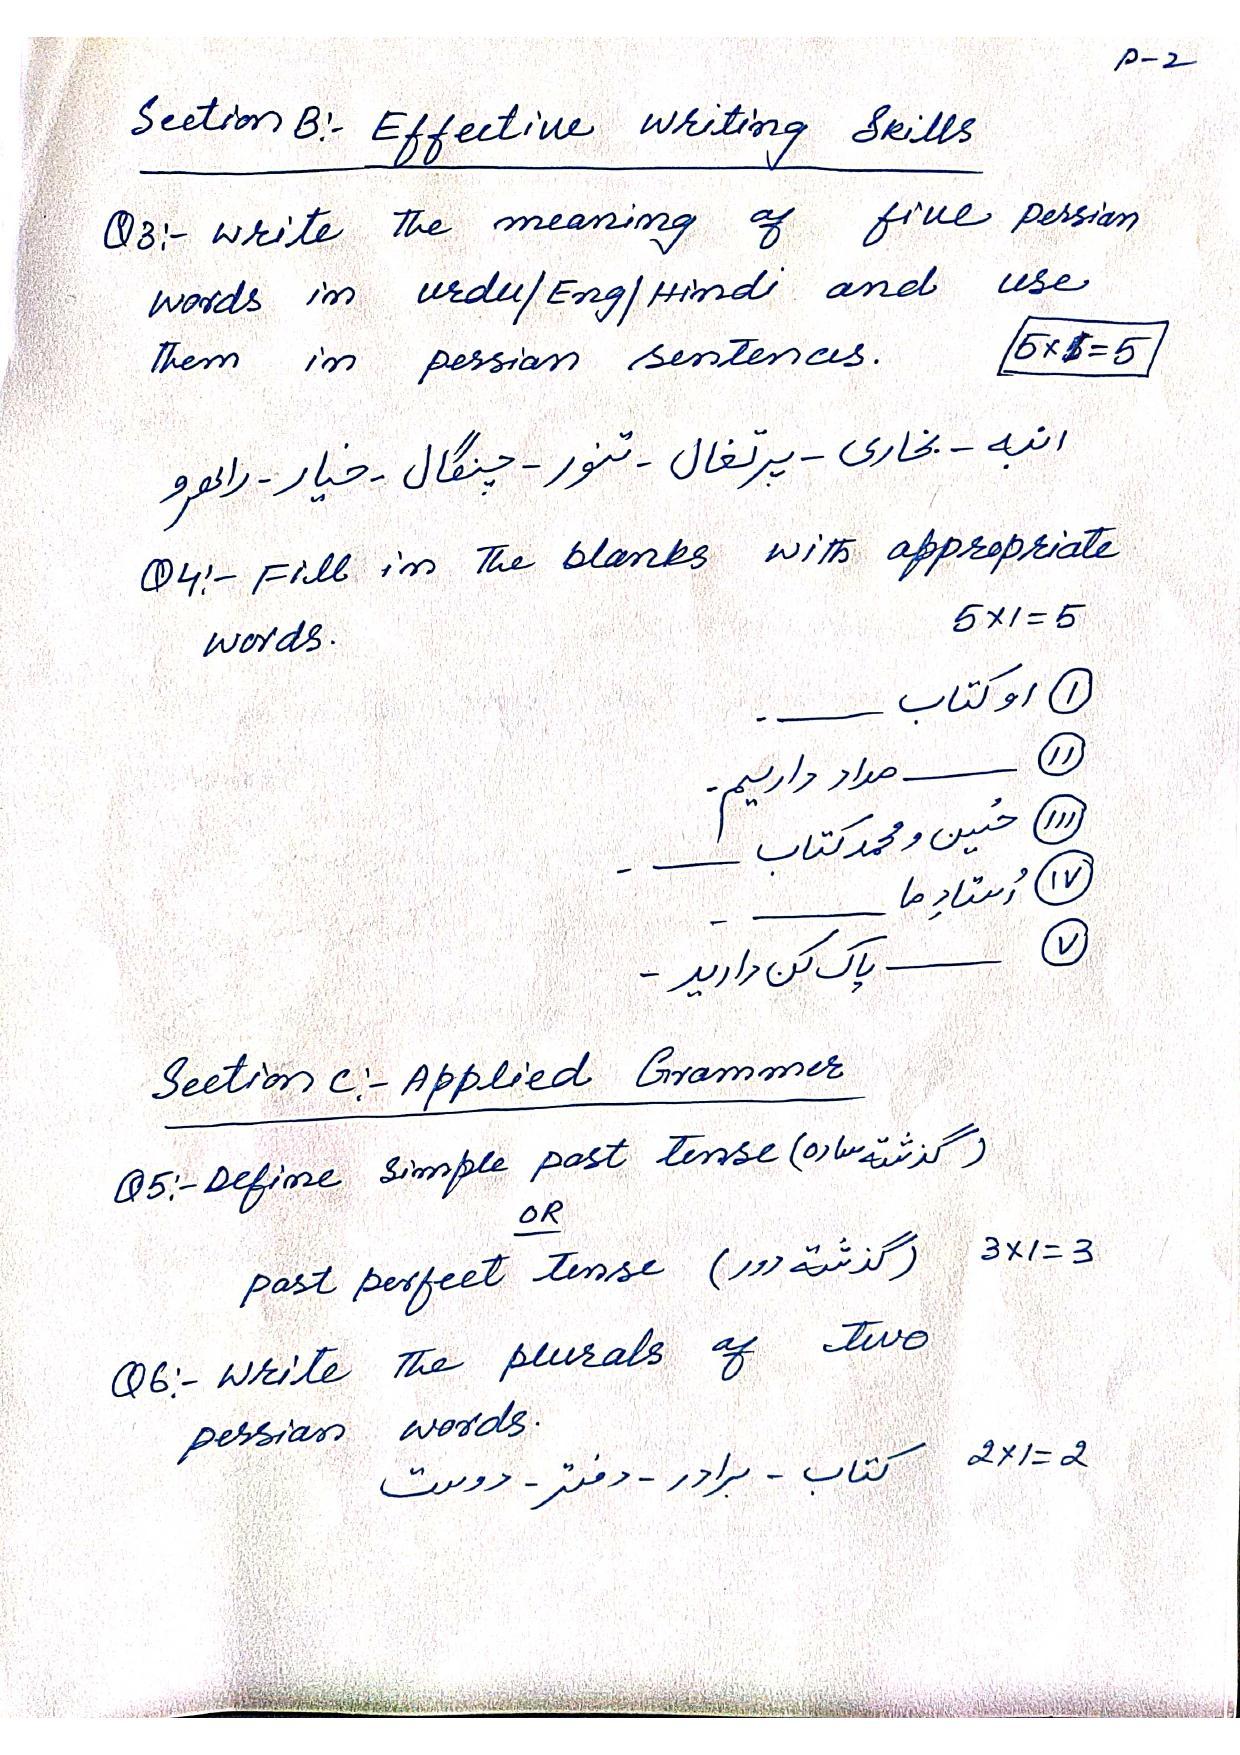 P-2
Section B:- Effective Writing Skills
Q3:- Write the meaning of five persian
words in urdu/Eng/Hindi and use
them in persian sentences. 5x1=5
انبه - بخاری - پرتغال - تنور - چنگال - خیار - راهرو
Q4:- Fill in the blanks with appropriate
words. 5x1=5
(I) او کتاب ــــــ -
(II) ــــــ مداد داریم -
(III) حُسین و محمد کتاب ــــــ -
(IV) اُستادِ ما ــــــ -
(V) ــــــ پاک کن دارید -
Section C:- Applied Grammer
Q5:- Define simple past tense (گذشتۀ ساده)
OR
past perfect tense (گذشتۀ دور) 3x1=3
Q6:- Write the plurals of two
persian words.
کتاب - برادر - دفتر - دوست 2x1=2